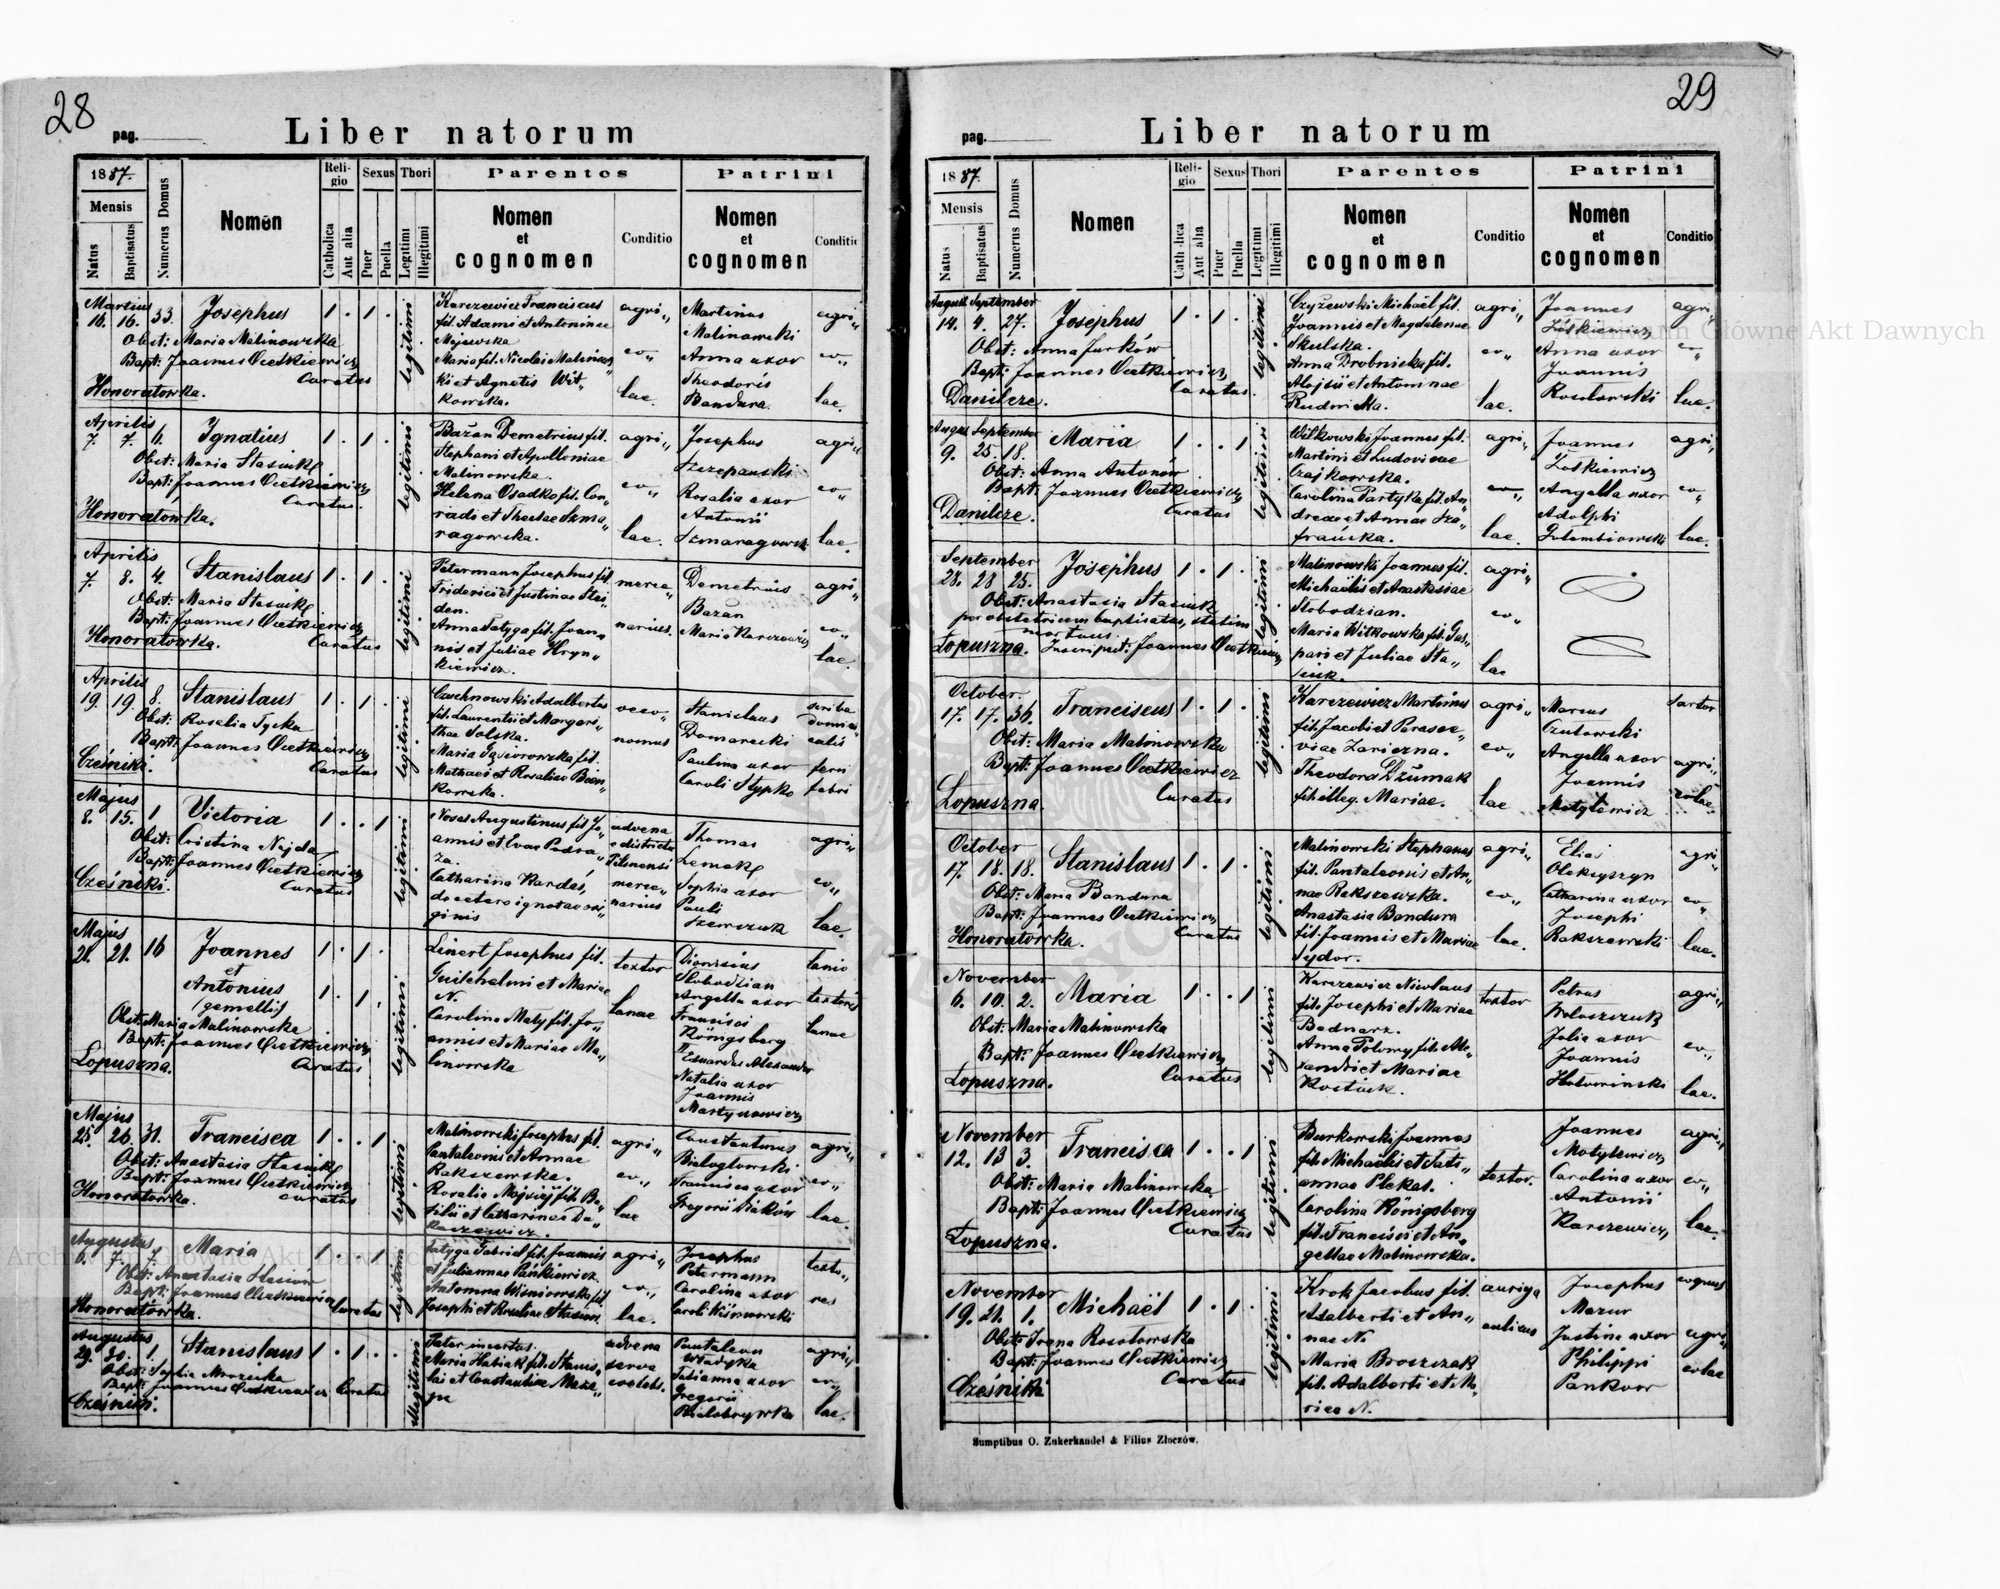 28
pag.
Liber natorum
1887.
Religio
Sexus
Thori
Parentes
Patrini
Mensis
Natus
Baptisatus
Numerus Domus
Nomen
Catholica
Aut alia
Puer
Puella
Legitimi
Illegitimi
Nomen et cognomen
Conditio
Nomen et cognomen
Conditio
Martius
16. 16. 33. Josephus 1 . 1 .
Obst: Maria Malinowska
Bapt: Joannes
Curatus
Honoratowka.
legitimi
Karczewicz Franciscus
fil. Adami et Antoninae
Majewska
Maria fil. Nicolai Malinows„
ki et Agnetis Wit„
kowska.
agri„
co„
lae.
Martinus
Malinowski
Anna uxor
Theodoris
Bandura
agri„
co„
lae.
Aprilis
7. 7. 6. Ignatius 1 . 1 .
Obst: Maria Stasiuk
Bapt: Joannes
Curatus.
Honoratówka.
legitimi
Bażan Demetrius fil.
Stephani et Apolloniae
Malinowska.
Helena Osadko fil. Con„
radi et Theclae Szma„
ragowska.
agri„
co„
lae.
Josephus
Szczepanski
Rosalia uxor
Antonii
agri„
co„
lae.
Aprilis
7. 8. 4. Stanislaus 1 . 1 .
Obst: Maria Stasiuk
Bapt: Joannes
Honoratowka. Curatus
legitimi
Petermann Josephus fil.
Friderici et Justinae Stei„
den.
Anna Tatyga fil. Joan„
nis et Juliae Hryn„
kiewicz.
merce„
narius.
Demetrius
Bażan
Maria Karczewicz
agri„
co„
lae.
Aprilis
19. 19. 8. Stanislaus 1 . 1 .
Obst: Rosalia
Bapt: Joannes
Curatus
legitimi
Adalbertus
fil. Laurentii et Margari„
thae Solska.
Maria fil.
Mathaei et Rosaliae
oeco„
nomus
Stanislaus
Domarecki
Paulina uxor
Caroli Stypko
scriba
fabri
Majus
8. 15. 1 Victoria 1 . . 1
Obst: Cristina Najda
Bapt: Joannes
Curatus
legitimi
Augustinus fil. Jo„
annis et Evae Podra„
za.
Catharina Kardaś,
de cetero ignotae ori„
ginis
advena
e districtu
Pilsnensi
merce„
narius
Thomas
Sophia uxor
Pauli
Szewczuk
agri„
co„
lae.
Majus
21. 21. 16 Joannes 1 . 1 .
et
Antonius 1 . 1 .
(gemelli)
Obst: Maria Malinowska
Bapt: Joannes
Lopuszna. Curatus
legitimi
Linert Josephus fil.
Guilhelmi et Mariae
N.
Carolina Maty fil. Jo„
annis et Mariae Ma„
linowska
textor
lanae
Dionisius
Slobodzian
Angella uxor
Francisci
Königsberg
Natalia uxor
Joannis
Martynowicz
textoris
lanae
Majus
25. 26. 31. Francisca 1 . . 1
Obst: Anastasia Stasiuk
Bapt: Joannes
Honoratowka. Curatus
legitimi
Malinowski Josephus fil.
Pantaleonis et Annae
Rakszewska.
Rosalia fil. Ba„
silii et Catharinae
agri„
co„
lae
Constantinus
Białogłowski
Francisca uxor
Gregorii
agri„
co„
lae.
Augustus
6. 7. 7. Maria 1 . . 1
Obst: Anastasia
Bapt: Joannes
Honoratówka. Curatus
legitimi
Tatyga Gabriel fil. Joannis
et Juliannae
Antonina Wiśniowska fil.
Josephi et Rosaliae
agri„
co„
lae.
Josephus
Petermann
Carolina uxor
Caroli
texto„
res
Augustus
29. 30. 1. Stanislaus 1 . 1 .
Obst: Sophia
Bapt: Joannes Curatus
illegitimi
Pater incertus.
Maria fil. Stanis„
lai et Constantiae
advena
serva
Pantaleon
Władyka
uxor
Gregorii
agri„
co„
lae.
29
pag.
Liber natorum
1887.
Religio
Sexus
Thori
Parentes
Patrini
Mensis
Natus
Baptisatus
Numerus Domus
Nomen
Catholica
Aut alia
Puer
Puella
Legitimi
Illegitimi
Nomen et cognomen
Conditio
Nomen et cognomen
Conditio
August September
14. 4. 27. Josephus 1 . 1 .
Obst: Anna Jurków
Bapt: Joannes
Curatus.
Danilcze.
legitimi
Czyżewski Michaël fil.
Joannis et Magdalenae
Skulska.
Anna Drobnicka fil.
Alojsii et Antoninae
Rudnicka.
agri„
co„
lae.
Joannes
Żółkiewicz
Anna uxor
Joannis
Rosolowski
agri„
co„
lae.
August September
9. 25. 18. Maria 1 . . 1
Obst: Anna Antonów
Bapt: Joannes
Curatus
Danilcze.
legitimi
Witkowski Joannes fil.
Martini et Ludovicae
Czajkowska.
Carolina Partyka fil. An„
dreae et Annae Sza„
frańska.
agri„
co„
lae.
Joannes
Żółkiewicz
Angella uxor
Adolphi
Golembiowski
agri„
co„
lae.
September
28. 28 25. Josephus 1 . 1 .
Obst: Anastasia Stasiuk
per obstetricem baptisatus, statim
mortuus.
Lopuszna. Joannes
legitimi
Malinowski Joannes fil.
Michaëlis et Anastasiae
Slobodzian.
Maria Witkowska fil. Gas„
pari et Juliae Sta„
siuk.
agri„
co„
lae
October
17. 17. 36. Franciscus 1 . 1 .
Obst: Maria Malinowska
Bapt: Joannes
Curatus
Lopuszna.
legitimi
Karczewicz Martinus
fil. Jacobi et Parasce„
viae
Theodora Dżumak
fil. illeg. Mariae.
agri„
co„
lae
Marcus
Angella uxor
Joannis
Motylewicz
sartor
agri„
colae.
October
17. 18. 18. Stanislaus 1 . 1 .
Obst: Maria Bandura
Bapt: Joannes
Curatus
Honoratówka.
legitimi
Malinowski Stephanus
fil. Pantaleonis et An„
nae Rakszewska.
Anastasia Bandura
fil. Joannis et Mariae
Sydor.
agri„
co„
lae.
Elias
Oleksyszyn
Catharina uxor
Josephi
Rakszewski
agri„
co„
lae.
November
6. 10. 2. Maria 1 . . 1
Obst: Maria Malinowska
Bapt: Joannes
Lopuszna. Curatus
legitimi
Karczewicz Nicolaus
fil. Josephi et Mariae
Bednarz.
Anna fil. Ale„
xandri et Mariae
Kostiuk.
textor
Petrus
Wołoszczuk
Julia uxor
Joannis
agri„
co„
lae.
November
12. 13 3. Francisca 1 . . 1
Obst: Maria Malinowska
Bapt: Joannes
Curatus
Lopuszna.
legitimi
Burkowski Joannes
fil. Michaëlis et Tati„
annae Plekas.
Carolina Königsberg
fil. Francisci et An„
gellae Malinowska.
textor.
Joannes
Motylewicz
Carolina uxor
Antonii
Karczewicz
agri„
co„
lae.
November
19. 21. 1. Michaël 1 . 1 .
Obst: Irena Rosolowska
Bapt: Joannes
Curatus
legitimi
Krok Jacobus fil.
Adalberti et An„
nae N.
Maria Broszczak
fil. Adalberti et Ma„
riae N.
auriga
aulicus
Josephus
Mazur
Justina uxor
Philippi
Pankow
agri„
colae
Sumptibus O. Zukerkandel & Filius Złoczów.
Archiwum Główne Akt Dawnych
Archiwum Główne Akt Dawnych